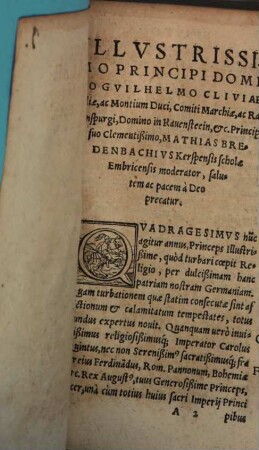 ILLVSTRISSI
MO PRINCIPI DOMI
NO GVILHELMO CLIVIAE
liæ, ac Montium Duci, Comiti Marchiæ, ac Ra
nspurgi, Domino in Rauensteein, &c. Princip
suo Clementißimo, MATHIAS BRE
DENBACHIVS Kerspensis scholæ
Embricensis moderator, salu
tem ac pacem à Deo
precatur.
QVADRAGESIMVS nũc
agitur annus, Princeps Illustriſ
ßime, quòd turbari cœpit Re
ligio, per dulcißimam hanc
patriam nostram Germaniam.
uam turbationem quæ statim consecutæ sint af
ctionum & calamitatum tempestates, totus
undus expertus nouit. Quanquam uerò inui
ißimus religiosißimusq; Imperator Carolus
uintus, nec non Serenißimꝰ sacratißimusq; fra
reius Ferdinādus, Rom. Pannonum, Bohemiæ
c. Rex Augustꝰ, tuus Generosißime Princeps,
cer, unà cùm totius huius sacri Imperij Princi
A 2 pibus